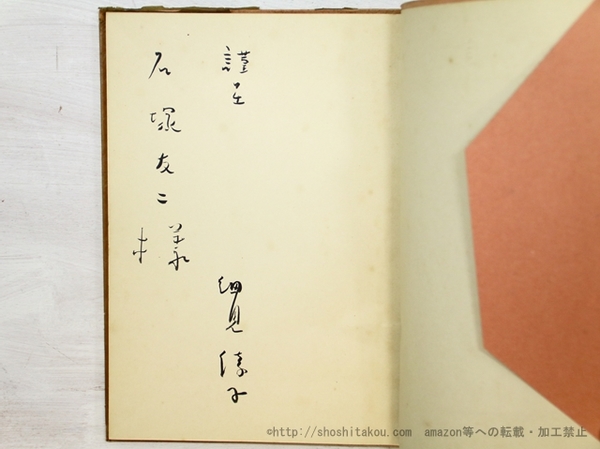 謹呈
細見綾子
石塚友二様
©http://shoshitakou.com amazon等への転載・加工禁止